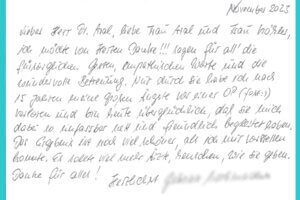 November 2023
Lieber Herr Dr. Aral, liebe Frau Aral und Frau
ich möchte von Herzen Danke!!! sagen für all die
Gesten, empathischen Worte und die
wundervolle Betreuung. Nur durch Sie habe ich nach
15 Jahren meine großen Ängste vor einer OP
verloren und bin heute überglücklich, daß Sie mich
dabei so unfassbar nett und freundlich begleitet haben.
Das Ergebnis ist noch viel schöner, als ich mir vorstellen
konnte. Es sollte viel mehr Ärzte, Menschen, wie Sie geben.
Danke für alles! Herzlichst